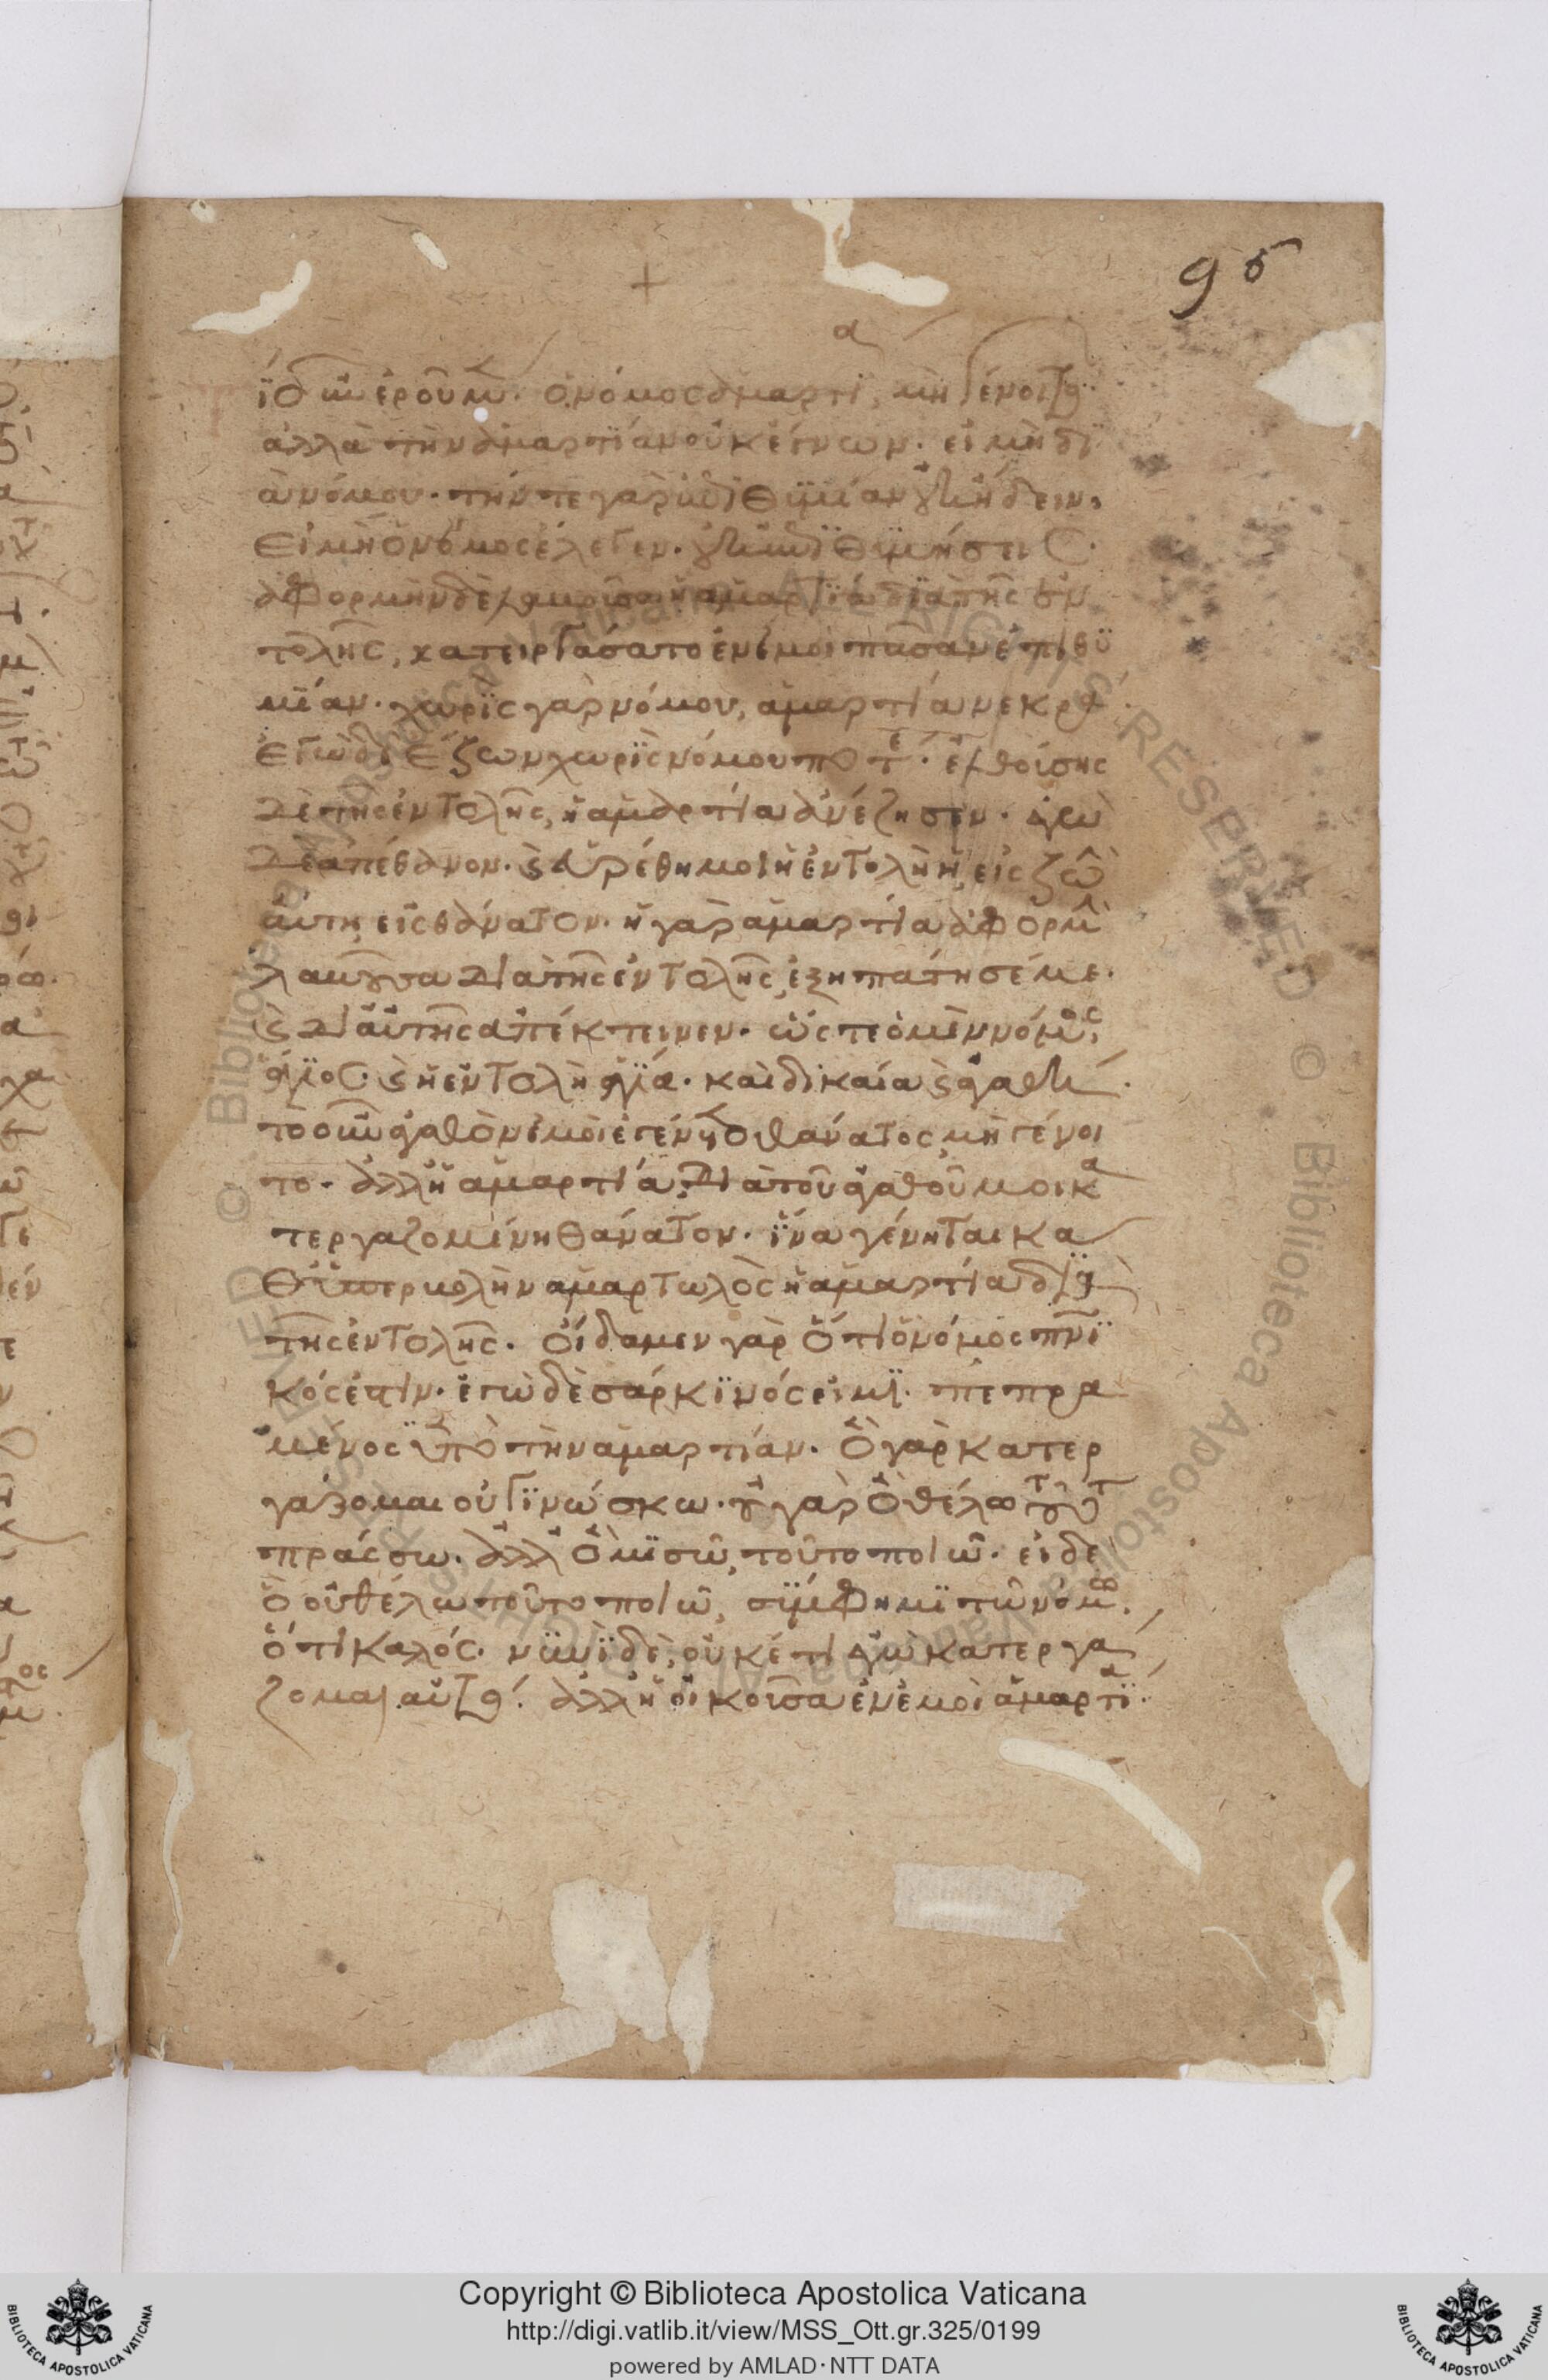 95
+
τί οὖν ἐροῦμεν. ὁ νόμος ἁμαρτία, μὴ γένοιτο·
ἀλλὰ τὴν ἁμαρτίαν οὐκ ἔγνων. εἰ μὴ δι
ὰ νόμου. τήν τε γὰρ ἐπιθυμίαν οὐκ ἤδειν,
εἰ μὴ ὁ νόμος ἔλεγεν. οὐκ ἐπιθυμήσεις.
ἀφορμὴν δὲ λαβοῦσα ἡ ἁμαρτία διὰ τῆς ἐν
τολῆς, κατειργάσατο ἐν ἐμοὶ πᾶσαν ἐπιθυ
μίαν. χωρὶς γὰρ νόμου, ἁμαρτία νεκρά.
ἐγὼ δὲ ἔζων χωρὶς νόμου ποτέ. ἐλθούσης
δὲ τῆς ἐντολῆς, ἡ ἁμαρτία ἀνέζησεν. ἐγὼ
δὲ ἀπέθανον. ϗ εὑρέθη μοι ἡ ἐντολὴ ἡ εἰς ζωὴν
αὕτη εἰς θάνατον. ἡ γὰρ ἁμαρτία ἀφορμὴν
λαβοῦσα διὰ τῆς ἐντολῆς, ἐξηπάτησέ με.
ϗ δι' αὐτῆς ἀπέκτεινεν. ὥστε ὁ μὲν νόμος,
ἅγιος. ϗ ἡ ἐντολὴ ἁγία. καὶ δικαία ϗ ἀγαθή.
τὸ οὖν ἀγαθὸν ἐμοὶ γέγονε θάνατος, μὴ γένοι
το. ἀλλ' ἡ ἁμαρτία, διὰ τοῦ ἀγαθοῦ μοι κα
τεργαζομένη θάνατον. ἵνα γένηται κα
θ' ὑπερβολὴν ἁμαρτωλὸς ἡ ἁμαρτία διὰ
τῆς ἐντολῆς. οἴδαμεν γὰρ ὅτι ὁ νόμος πνϊ
κός ἐστιν. ἐγὼ δὲ σάρκινός εἰμι. πεπρα
μένος ὑπὸ τὴν ἁμαρτίαν. ὃ γὰρ κατερ
γάζομαι οὐ γινώσκω. οὐ γὰρ ὃ θέλω τοῦτο
πράσσω. ἀλλ' ὃ μισῶ, τοῦτο ποιῶ. εἰ δὲ
ὃ οὐ θέλω τοῦτο ποιῶ, σύμφημι τῷ νόμῳ,
ὅτι καλός. νυνὶ δὲ, οὐκέτι ἐγὼ κατεργά
ζομαι αὐτό. ἀλλ' ἡ οἰκοῦσα ἐν ἐμοὶ ἁμαρτία.
© Biblioteca Apostolica Vaticana ALL RIGHTS RESERVED
Copyright © Biblioteca Apostolica Vaticana
http://digi.vatlib.it/view/MSS_Ott.gr.325/0199
powered by AMLAD·NTT DATA
BIBLIOTECA APOSTOLICA VATICANA
BIBLIOTECA APOSTOLICA VATICANA